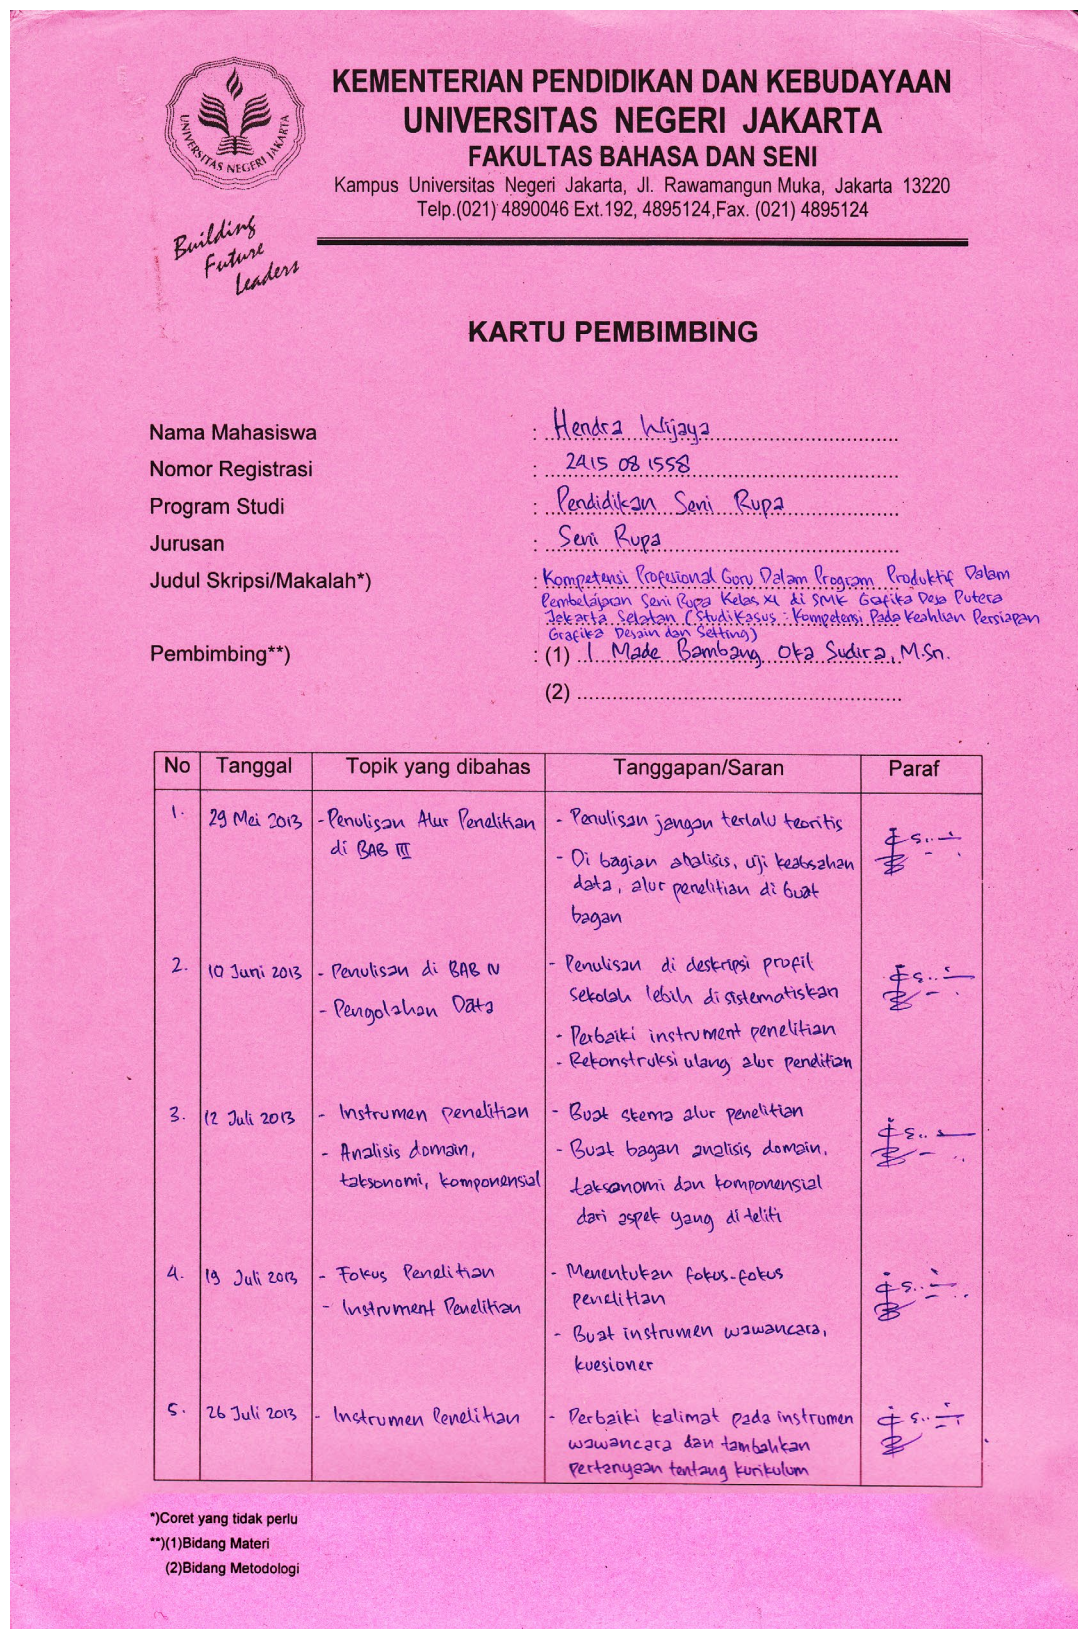 KEMENTERIAN PENDIDIKAN DAN KEBUDAYAAN
UNIVERSITAS NEGERI JAKARTA
FAKULTAS BAHASA DAN SENI
Kampus Universitas Negeri Jakarta, Jl. Rawamangun Muka, Jakarta 13220
Telp.(021) 4890046 Ext.192, 4895124,Fax. (021) 4895124
UNIVERSITAS NEGERI JAKARTA
Building
Future
Leaders
KARTU PEMBIMBING
Nama Mahasiswa : Hendra Wijaya
Nomor Registrasi : 2415 08 1558
Program Studi : Pendidikan Seni Rupa
Jurusan : Seni Rupa
Judul Skripsi/Makalah*) : Kompetensi Profesional Guru Dalam Program Produktif Dalam
Pembelajaran Seni Rupa Kelas XI di SMK Grafika Desa Putera
Jakarta Selatan (Studi Kasus : Kompetensi Pada Keahlian Persiapan
Grafika Desain dan Setting)
Pembimbing**) : (1) I Made Bambang Oka Sudira, M.Sn.
(2)
No Tanggal Topik yang dibahas Tanggapan/Saran Paraf
1. 29 Mei 2013 - Penulisan Alur Penelitian - Penulisan jangan terlalu teoritis
di BAB III
- Di bagian analisis, uji keabsahan
data, alur penelitian di buat
bagan
2. 10 Juni 2013 - Penulisan di BAB IV - Penulisan di deskripsi profil
- Pengolahan Data sekolah lebih di sistematiskan
- Perbaiki instrument penelitian
- Rekonstruksi ulang alur penelitian
3. 12 Juli 2013 - Instrumen penelitian - Buat skema alur penelitian
- Analisis domain, - Buat bagan analisis domain,
taksonomi, komponensial taksonomi dan komponensial
dari aspek yang di teliti
4. 19 Juli 2013 - Fokus Penelitian - Menentukan fokus-fokus
- Instrument Penelitian penelitian
- Buat instrumen wawancara,
kuesioner
5. 26 Juli 2013 - Instrumen Penelitian - Perbaiki kalimat pada instrumen
wawancara dan tambahkan
pertanyaan tentang kurikulum
*)Coret yang tidak perlu
**)(1)Bidang Materi
(2)Bidang Metodologi